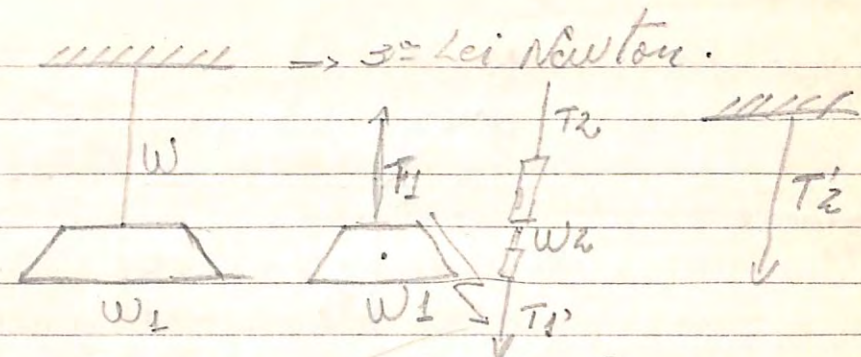 → 3ª Lei Newton.
W
T1
T2
W2
T'2
W1
W1
T1'